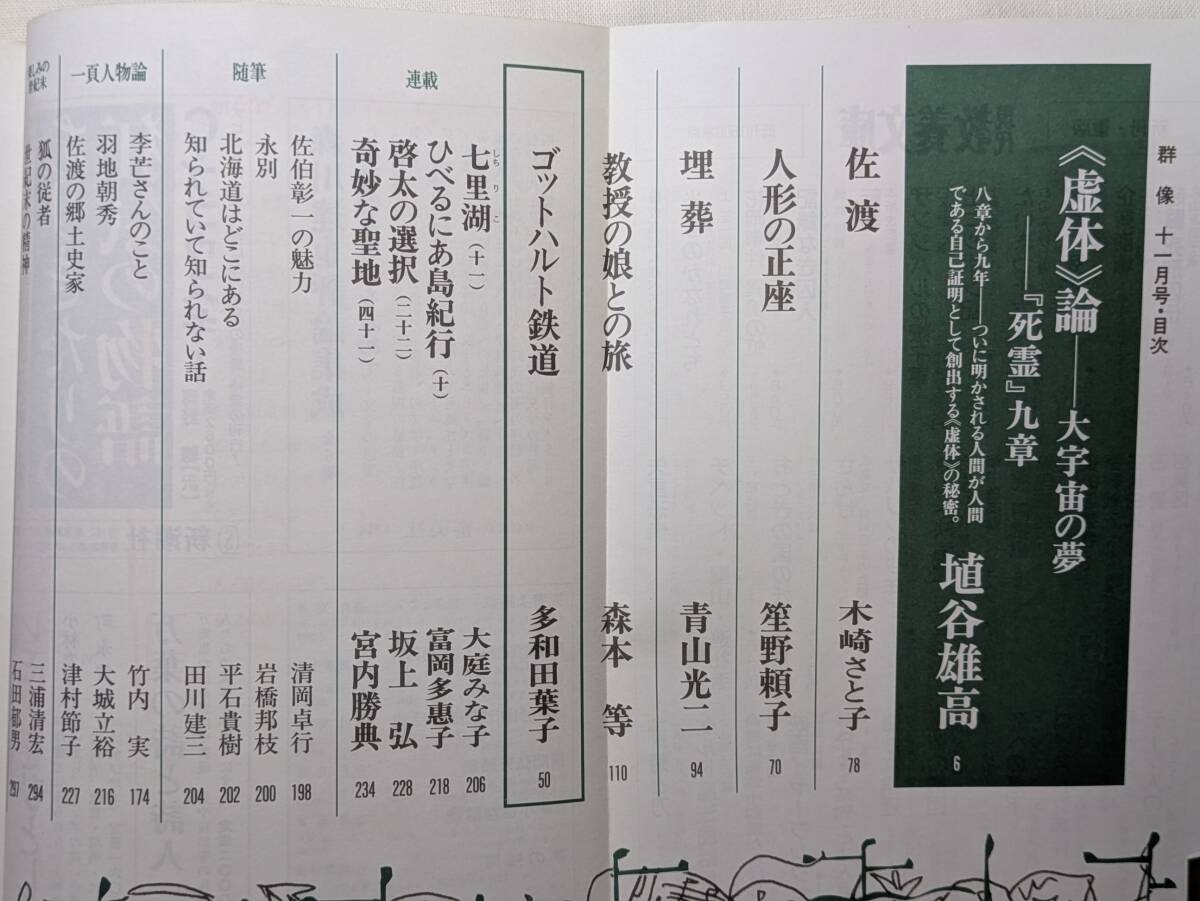 群像 十一月号・目次
《虚体》論——大宇宙の夢
——『死霊』九章
八章から九年——ついに明かされる人間が人間
である自己証明として創出する《虚体》の秘密。
埴谷雄高 6
佐渡 木崎さと子 78
人形の正座 笙野頼子 70
埋葬 青山光二 94
教授の娘との旅 森本 等 110
ゴットハルト鉄道 多和田葉子 50
連載
七里湖(十一) 大庭みな子 206
しちりこ
ひべるにあ島紀行(十) 富岡多惠子 218
啓太の選択(二十二) 坂上 弘 228
奇妙な聖地(四十一) 宮内勝典 234
随筆
佐伯彰一の魅力 清岡卓行 198
永別 岩橋邦枝 200
北海道はどこにある 平石貴樹 202
知られていて知られない話 田川建三 204
一頁人物論
李芒さんのこと 竹内 実 174
羽地朝秀 大城立裕 216
佐渡の郷土史家 津村節子 227
狐の従者 三浦清宏 294
世紀末の精神 石田郁男 297
現代教養文庫
新潮社